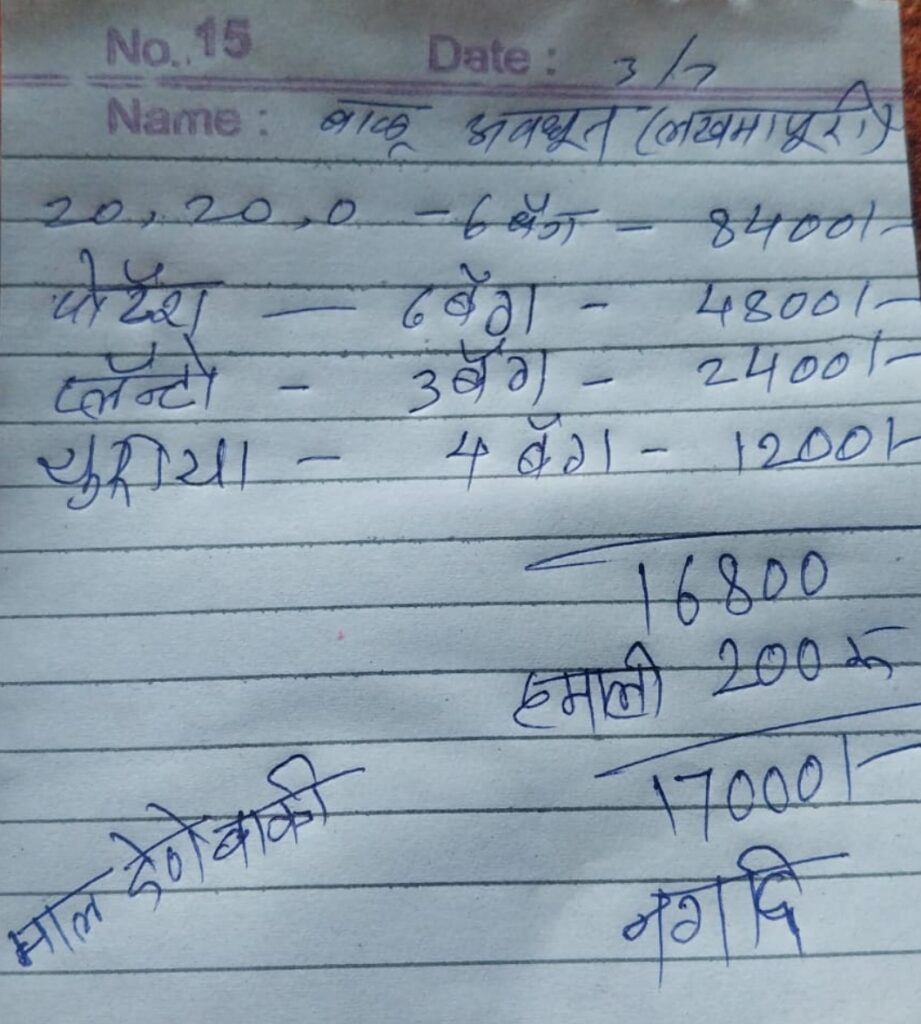 No..15 Date : 3/7
Name : बाळू अवधूत (लखमापूरी)
20, 20, 0 - 6 बॅग - 8400/-
पोटॅश — 6 बॅग - 4800/-
प्लॅन्टो - 3 बॅग - 2400/-
युरिया - 4 बॅग - 1200/-
16800
हमाली 200 रु
17000/-
माल देणे बाकी
नगदि